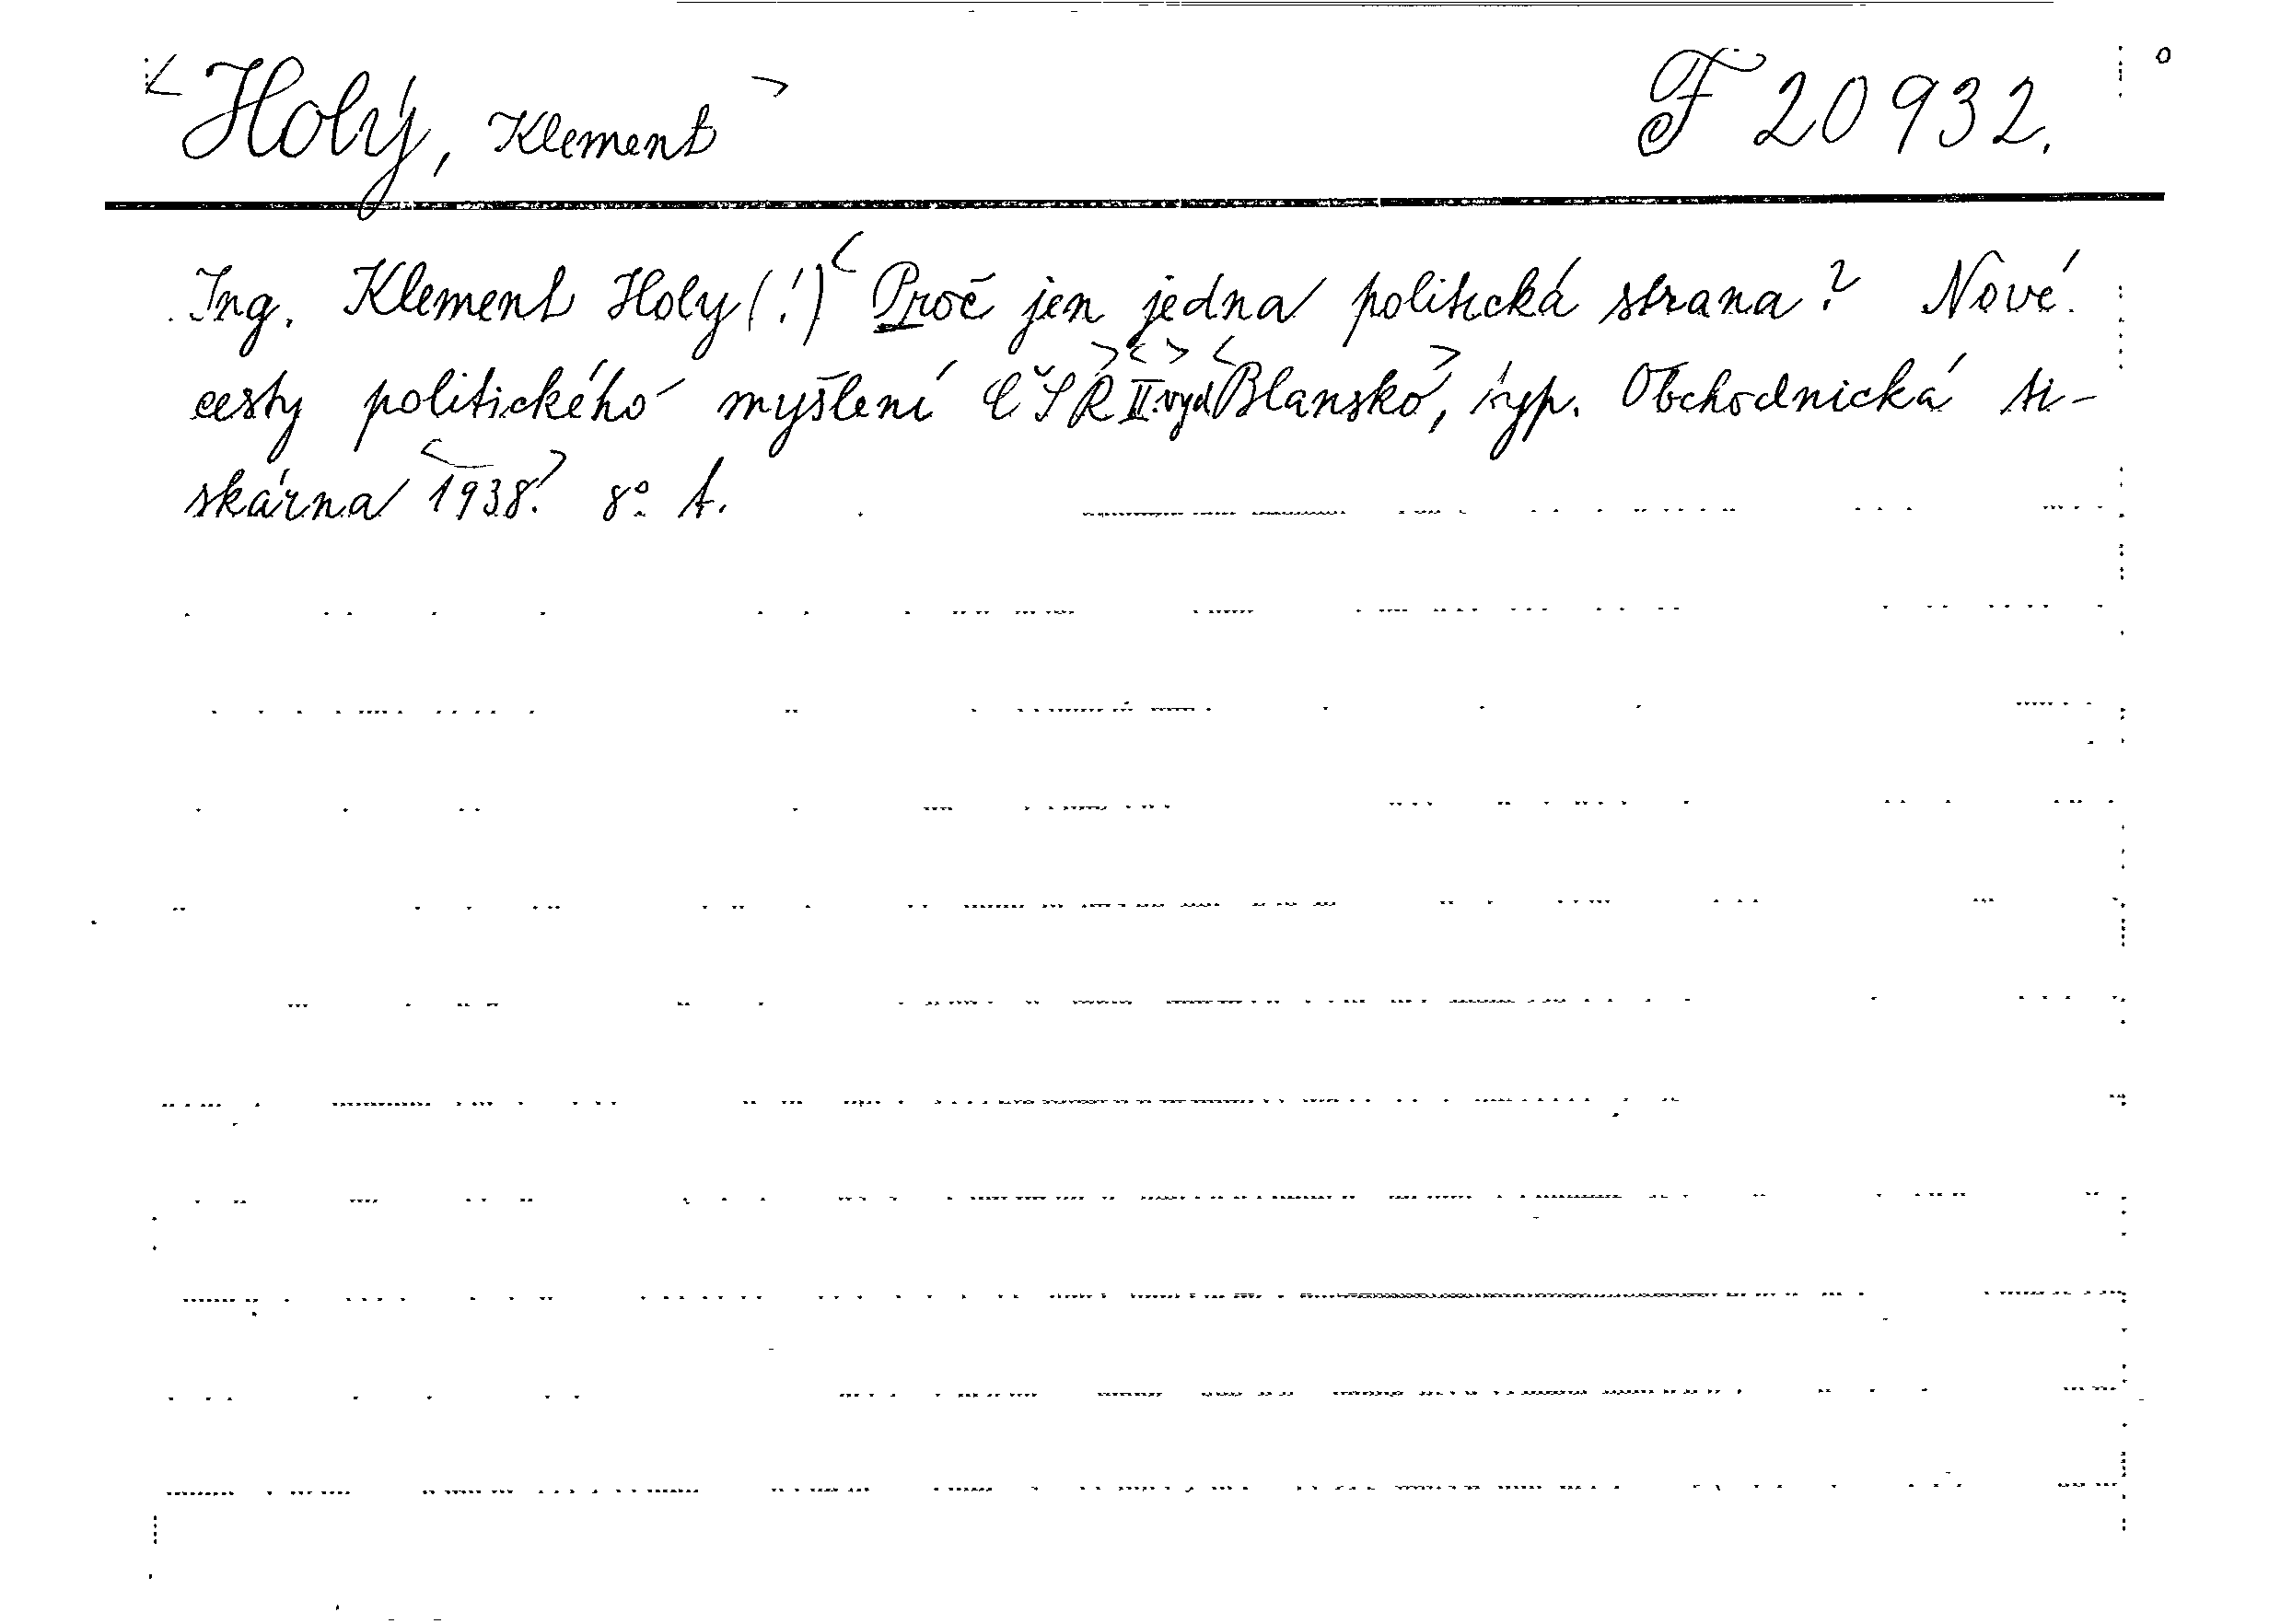 <Holý, Klement> F 20932.
Ing. Klement Holy (!) <Proč jen jedna politická strana? Nové
cesty politického myšlení ČSR> <II. vyd> <Blansko>, typ. Obchodnická ti-
skárna <1938.> 8° A.